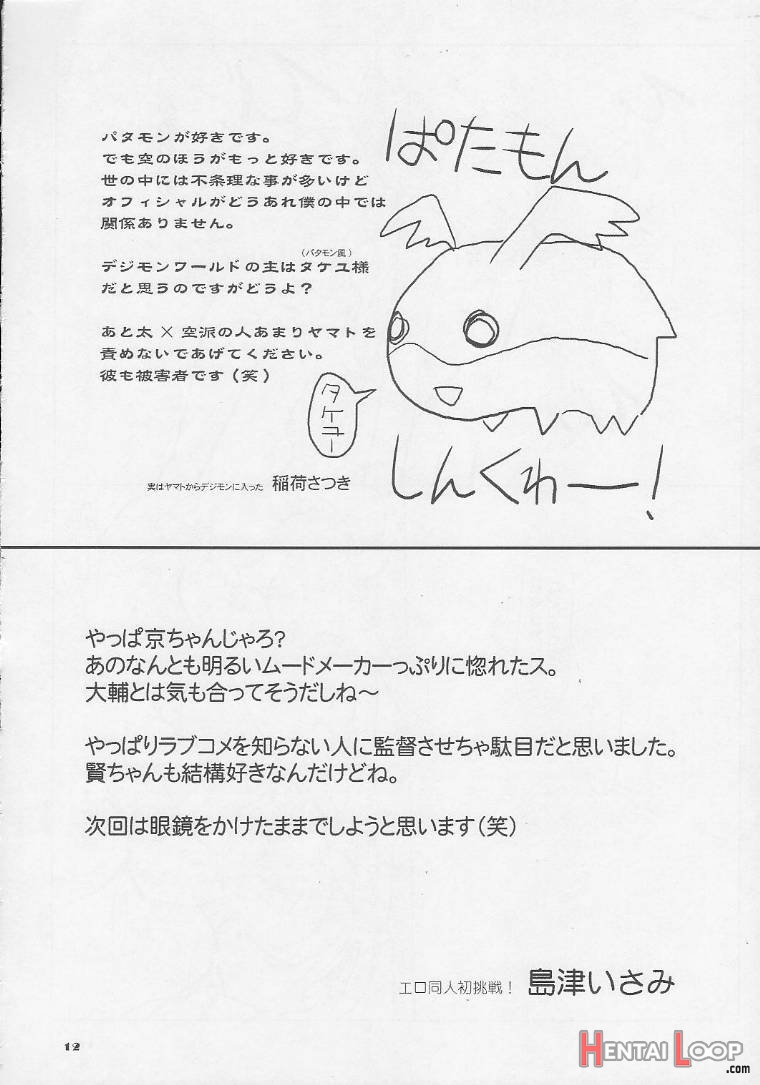 ぱたもん
パタモンが好きです。
でも空のほうがもっと好きです。
世の中には不条理な事が多いけど
オフィシャルがどうあれ僕の中では
関係ありません。
(パタモン風)
デジモンワールドの主はタケユ様
だと思うのですがどうよ?
あと太×空派の人あまりヤマトを
責めないであげてください。
彼も被害者です(笑)
タケユー
しんくわー!
実はヤマトからデジモンに入った 稲荷さつき
やっぱ京ちゃんじゃろ?
あのなんとも明るいムードメーカーっぷりに惚れたス。
大輔とは気も合ってそうだしね〜
やっぱりラブコメを知らない人に監督させちゃ駄目だと思いました。
賢ちゃんも結構好きなんだけどね。
次回は眼鏡をかけたままでしようと思います(笑)
エロ同人初挑戦! 島津いさみ
12
HENTAI LOOP
.com